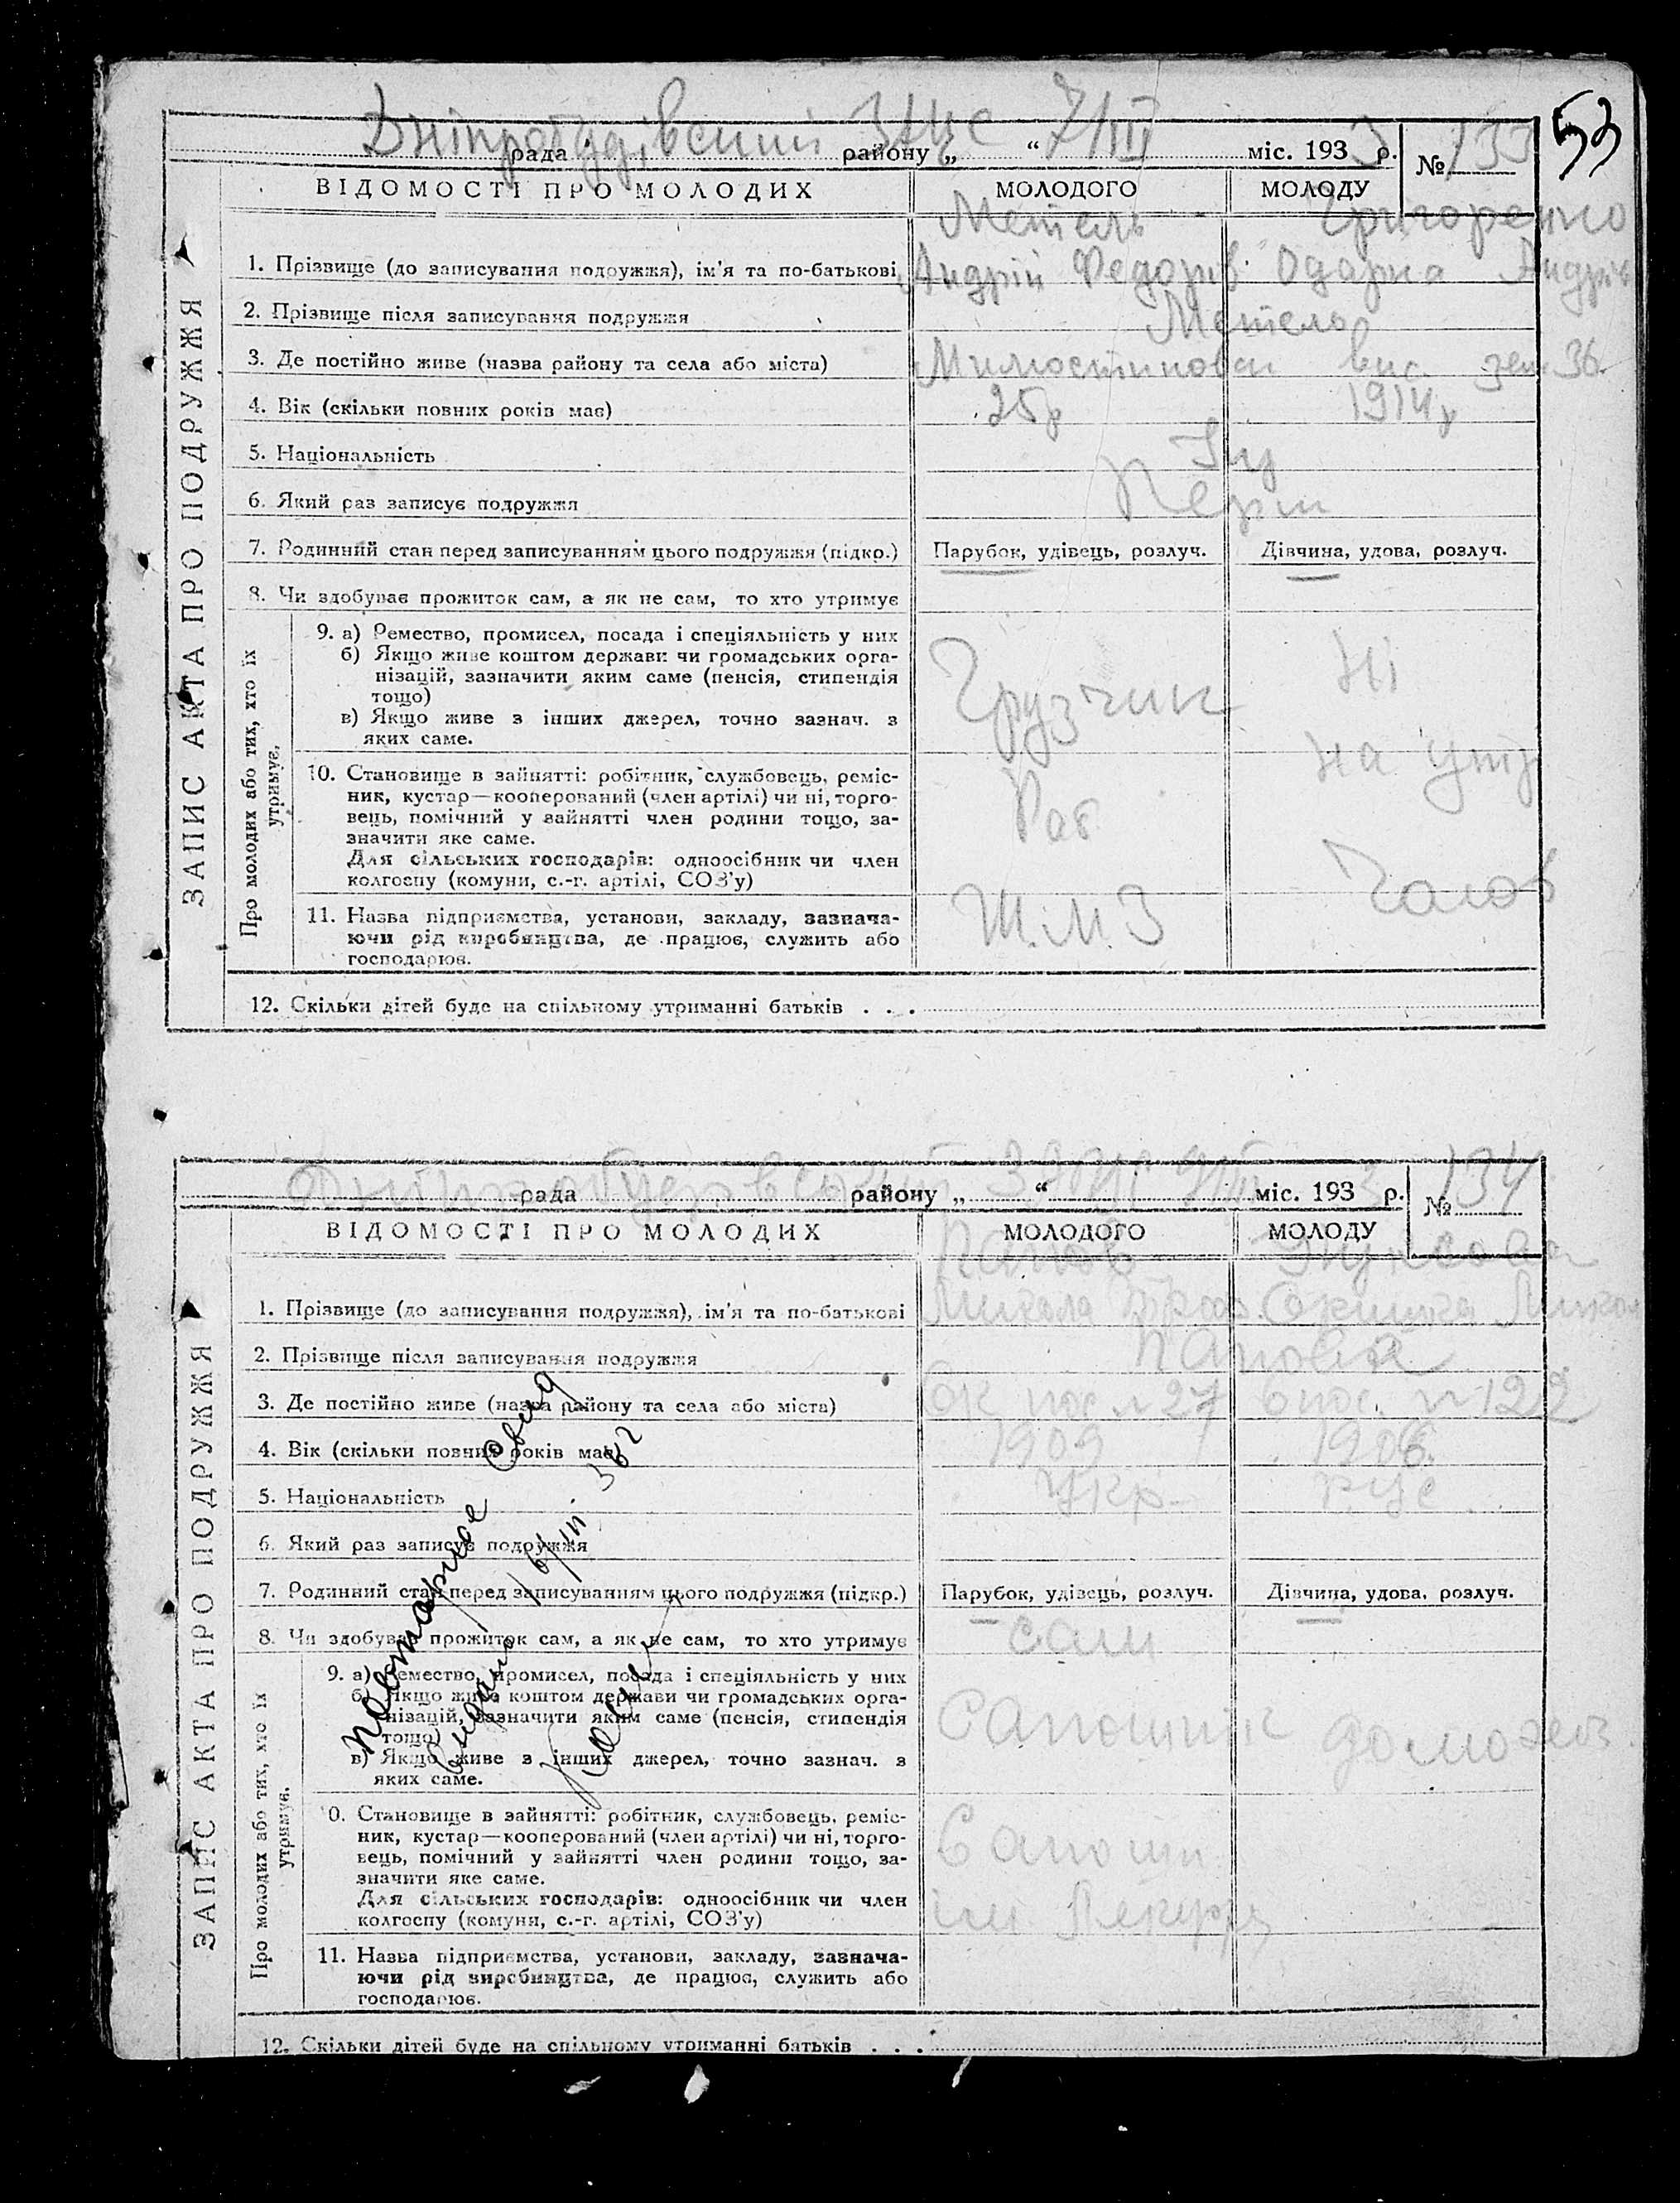 53
Дніпробудівський ЗАЦС 7/III
рада району „ “ міс. 1933 р. № 133
ВІДОМОСТІ ПРО МОЛОДИХ МОЛОДОГО МОЛОДУ
Метель Григоренко
1. Прізвище (до записування подружжя), ім’я та по-батькові Андрій Федорів Одарка Андрів
2. Прізвище після записування подружжя Метель
3. Де постійно живе (назва району та села або міста) зем. 36
4. Вік (скільки повних років має) 25 р 1914 р
5. Національність
6. Який раз записує подружжя Перш
7. Родинний стан перед записуванням цього подружжя (підкр.) Парубок, удівець, розлуч. Дівчина, удова, розлуч.
8. Чи здобуває прожиток сам, а як не сам, то хто утримує
ЗАПИС АКТА ПРО ПОДРУЖЖЯ
Про молодих або тих, хто їх утримує.
9. а) Ремество, промисел, посада і спеціяльність у них
б) Якщо живе коштом держави чи громадських орга-
нізацій, зазначити яким саме (пенсія, стипендія
тощо)
в) Якщо живе з інших джерел, точно зазнач. з
яких саме.
Грузчик Ні
10. Становище в зайнятті: робітник, службовець, реміс-
ник, кустар—кооперований (член артілі) чи ні, торго-
вець, помічний у зайнятті член родини тощо, за-
значити яке саме.
Для сільських господарів: одноосібник чи член
колгоспу (комуни, с.-г. артілі, СОЗ’у)
Роб На утр
11. Назва підприємства, установи, закладу, зазнача-
ючи рід виробництва, де працює, служить або
господарює.
Ш.М.З Чолов
12. Скільки дітей буде на спільному утриманні батьків . . .
Дніпробудівський
рада району „ “ міс. 1933 р. № 134
ВІДОМОСТІ ПРО МОЛОДИХ МОЛОДОГО МОЛОДУ
Папов
1. Прізвище (до записування подружжя), ім’я та по-батькові Микола
2. Прізвище після записування подружжя Папова
3. Де постійно живе (назва району та села або міста) пос. 27 6 пос. 122
4. Вік (скільки повних років має) 1909 1906.
5. Національність Укр Рус
6. Який раз записує подружжя
7. Родинний стан перед записуванням цього подружжя (підкр.) Парубок, удівець, розлуч. Дівчина, удова, розлуч.
8. Чи здобуває прожиток сам, а як не сам, то хто утримує сам
ЗАПИС АКТА ПРО ПОДРУЖЖЯ
Про молодих або тих, хто їх утримує.
9. а) Ремество, промисел, посада і спеціяльність у них
б) Якщо живе коштом держави чи громадських орга-
нізацій, зазначити яким саме (пенсія, стипендія
тощо)
в) Якщо живе з інших джерел, точно зазнач. з
яких саме.
Сапошнік домохоз.
10. Становище в зайнятті: робітник, службовець, реміс-
ник, кустар—кооперований (член артілі) чи ні, торго-
вець, помічний у зайнятті член родини тощо, за-
значити яке саме.
Для сільських господарів: одноосібник чи член
колгоспу (комуни, с.-г. артілі, СОЗ’у)
Сапошн
11. Назва підприємства, установи, закладу, зазнача-
ючи рід виробництва, де працює, служить або
господарює.
12. Скільки дітей буде на спільному утриманні батьків . . .
Повтарное Свид
видано 16/III